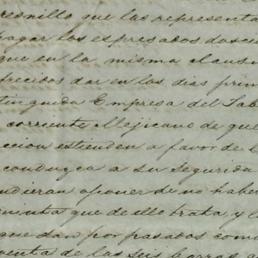 resnillo que las representa
pagar los expresados doscie
que en la misma clausu
frecidos dar en los dias prim
tinguida Empresa del Tab
corriente Mejicano de que
ccion estienden a favor de l
conduzca a su seguridad
udieran oponer de no habe
enta que de ello trata y l
que dan por pasados como
uenta de las seis barras a